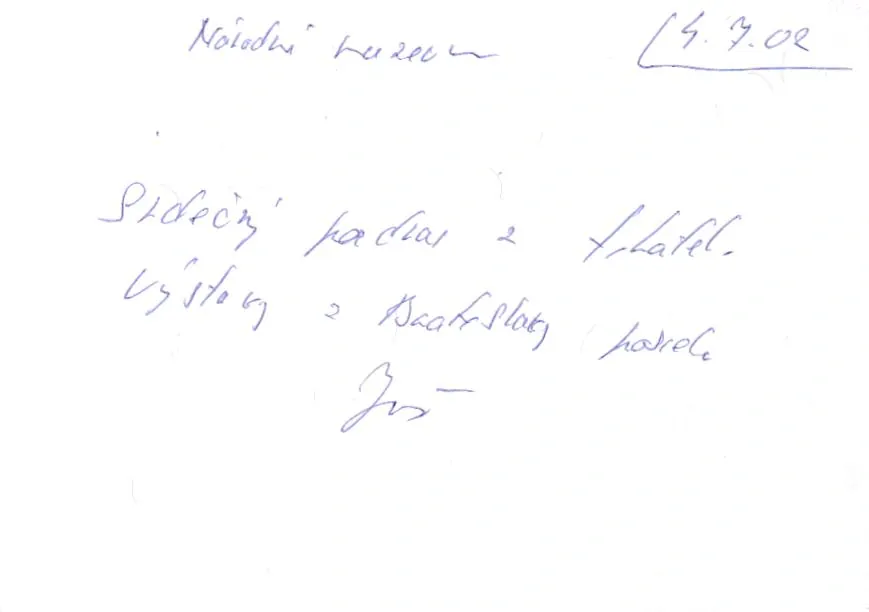 Národní muzeum 4.7.02
Srdečný pozdrav z filatel.
výstavy z Bratislavy posílá